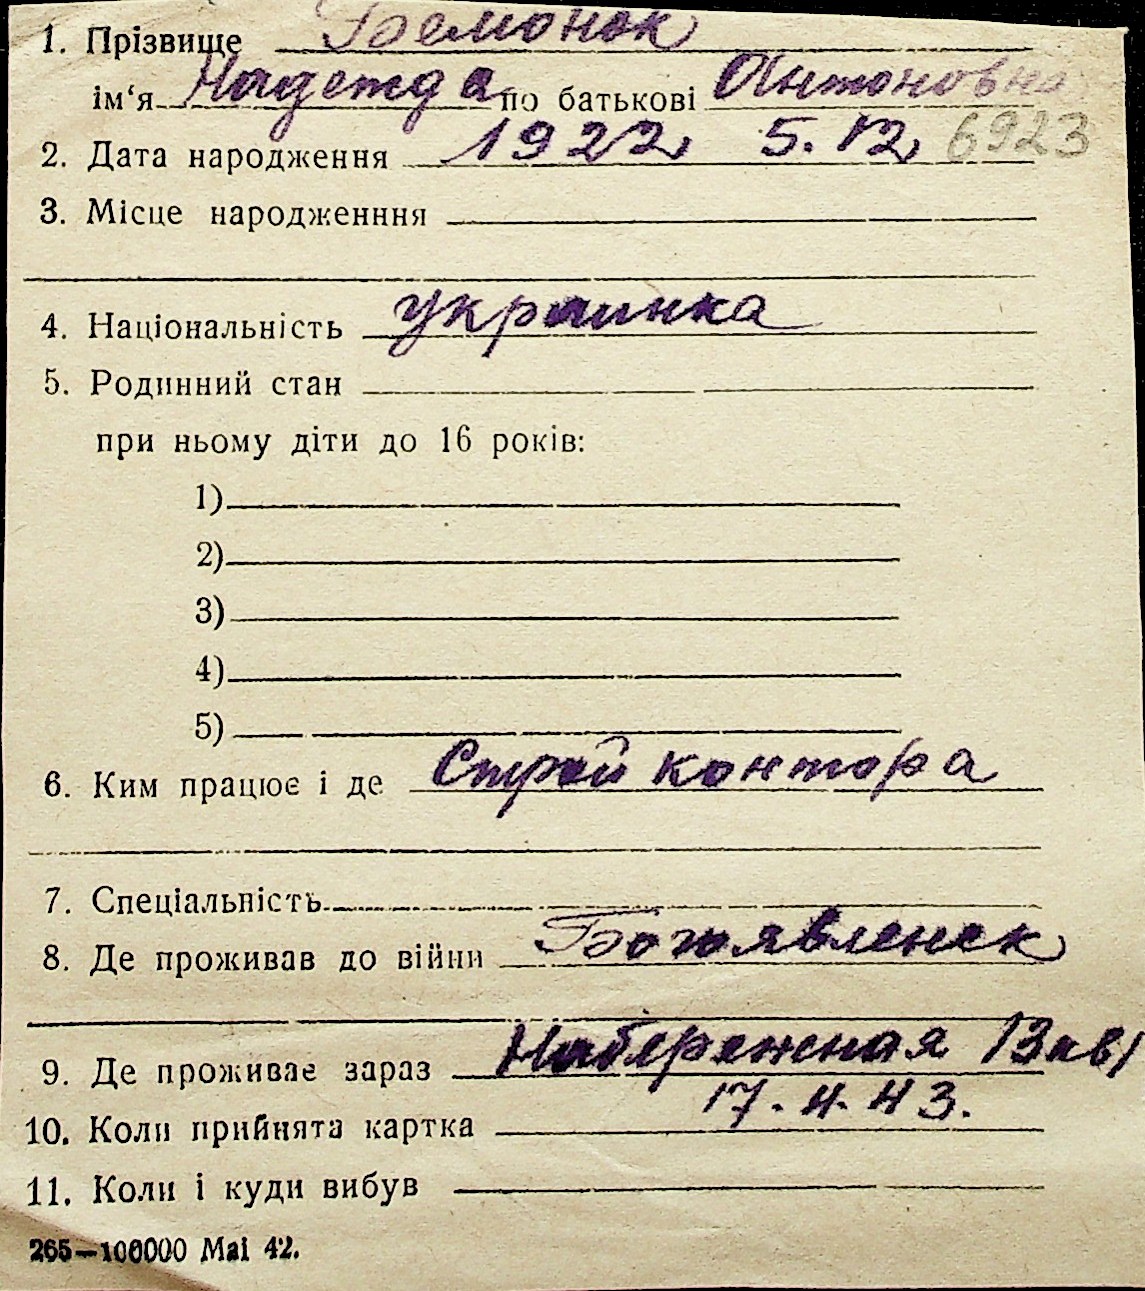 1. Прізвище Бемонок
ім‘я Надежда по батькові Антоновна
2. Дата народження 1922 5.12 6923
3. Місце народженння
4. Національність украинка
5. Родинний стан
при ньому діти до 16 років:
1)
2)
3)
4)
5)
6. Ким працює і де Строй контора
7. Спеціальність
8. Де проживав до війни Богоявленск
9. Де проживає зараз Набережная 13 кв 1
10. Коли прийнята картка 17.4.43.
11. Коли і куди вибув
265—100000 Mai 42.